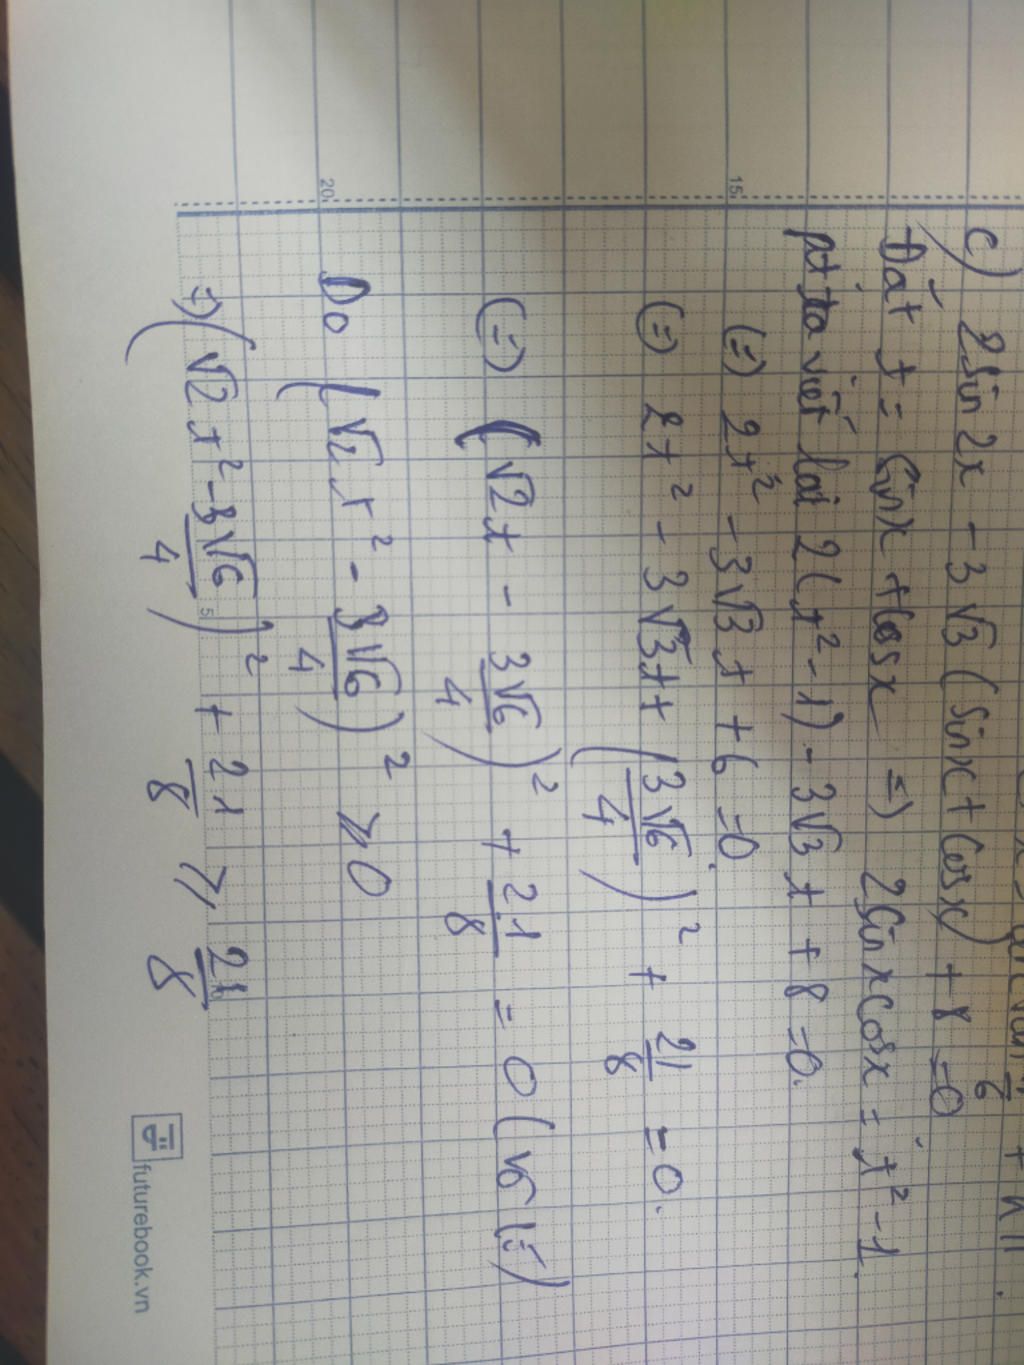 c) 2sin2x - 3√3 (sinx + cosx) + 8 = 0
Đặt t = sinx + cosx => 2sinxcosx = t² - 1.
pt ta viết lại 2(t² - 1) - 3√3 t + 8 = 0.
(=) 2t² - 3√3 t + 6 = 0.
(=) 2t² - 3√3 t + (3√6/4)² + 21/8 = 0.
(=) (√2 t - 3√6/4)² + 21/8 = 0 (vô lí)
Do (√2 t² - 3√6/4)² ⩾ 0
=) (√2 t² - 3√6/4)² + 21/8 ⩾ 21/8
15
20
5
futurebook.vn